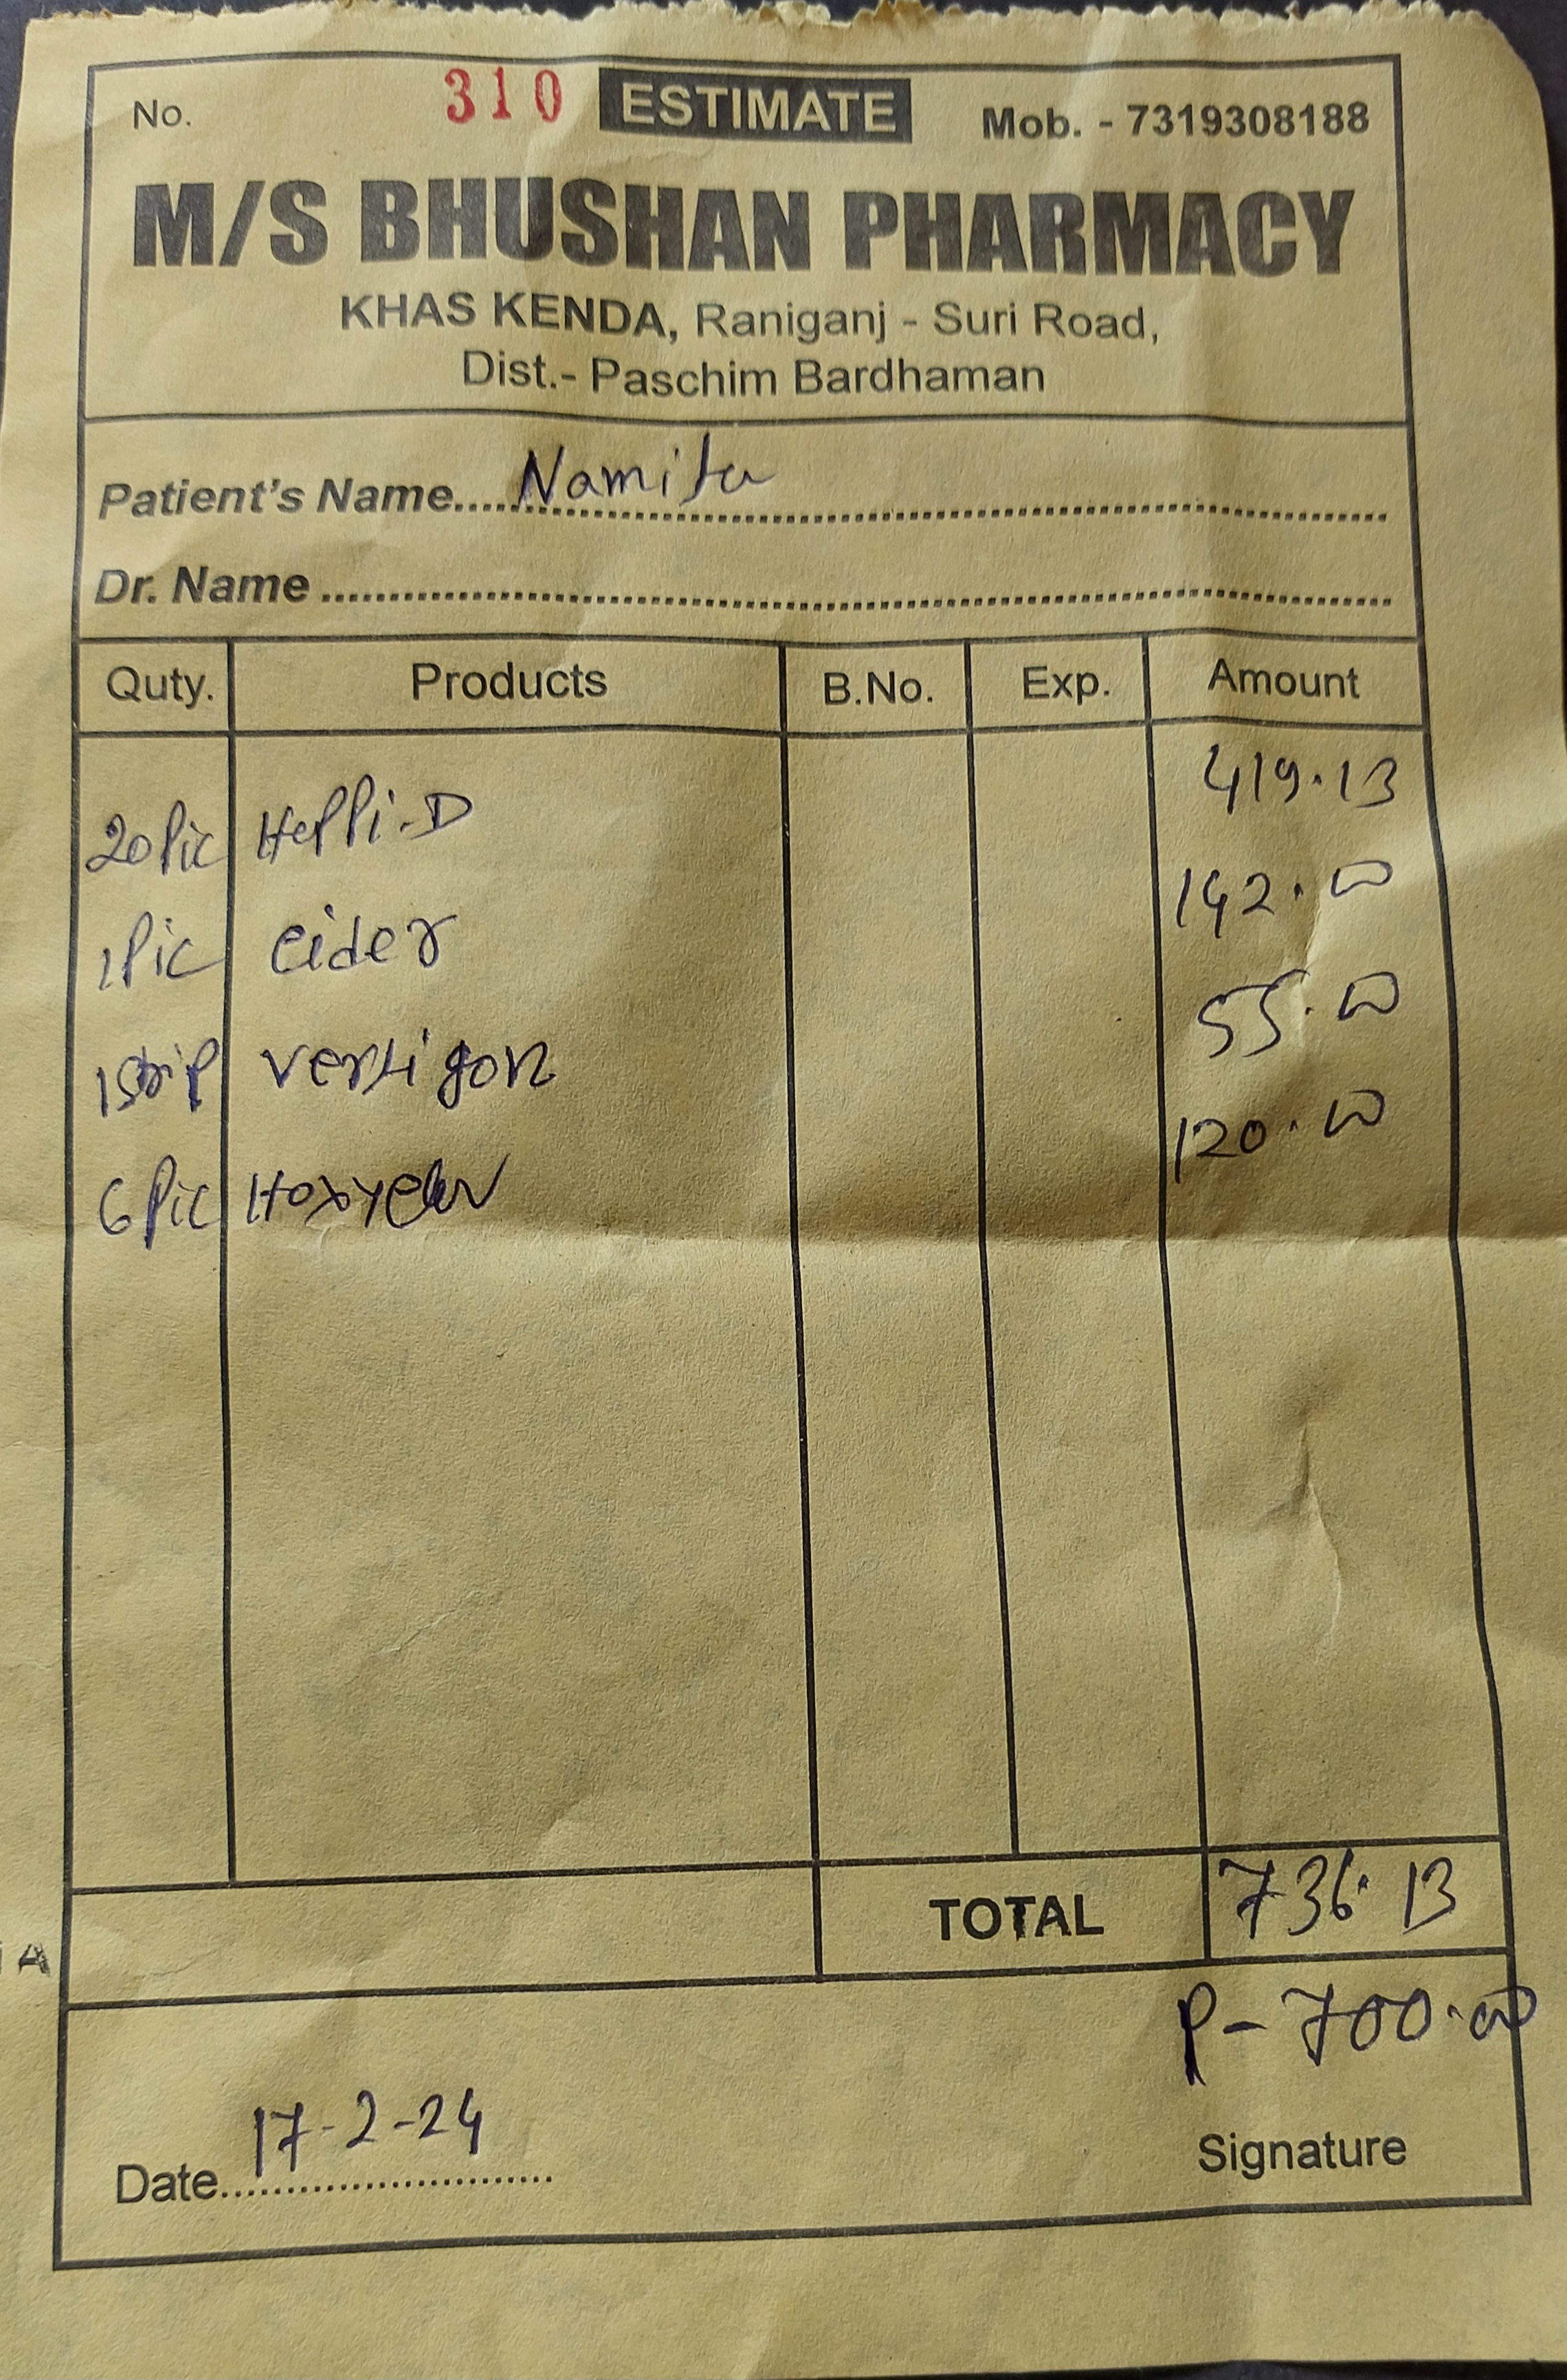 No. 310 ESTIMATE Mob. - 7319308188
M/S BHUSHAN PHARMACY
KHAS KENDA, Raniganj - Suri Road,
Dist.- Paschim Bardhaman
Patient's Name.... Namita
Dr. Name
Quty. Products B.No. Exp. Amount
20 Pic Heppi-D 419.13
1 Pic cider 142.00
1 Strip vertigon 55.00
6 Pic 120.00
TOTAL 736.13
P- 700.00
Date 17-2-24
Signature